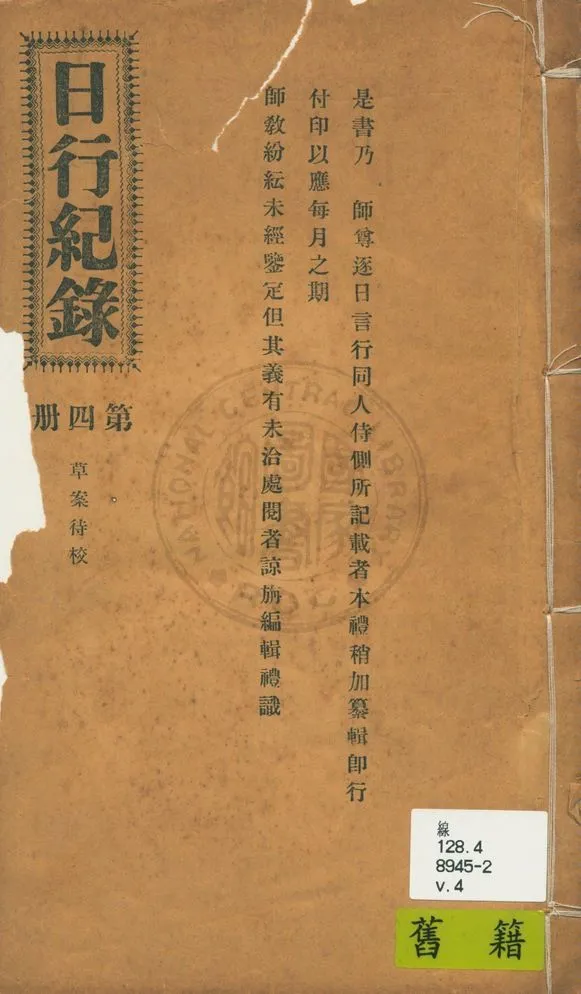 日行紀錄
第四册
草案待校
是書乃　師尊逐日言行同人侍側所記載者本禮稍加纂輯卽行
付印以應每月之期
師敎紛紜未經鑒定但其義有未治處閱者諒旃編輯禮識
NATIONAL CENTRAL LIBRARY
線
128.4
8945-2
v.4
舊籍